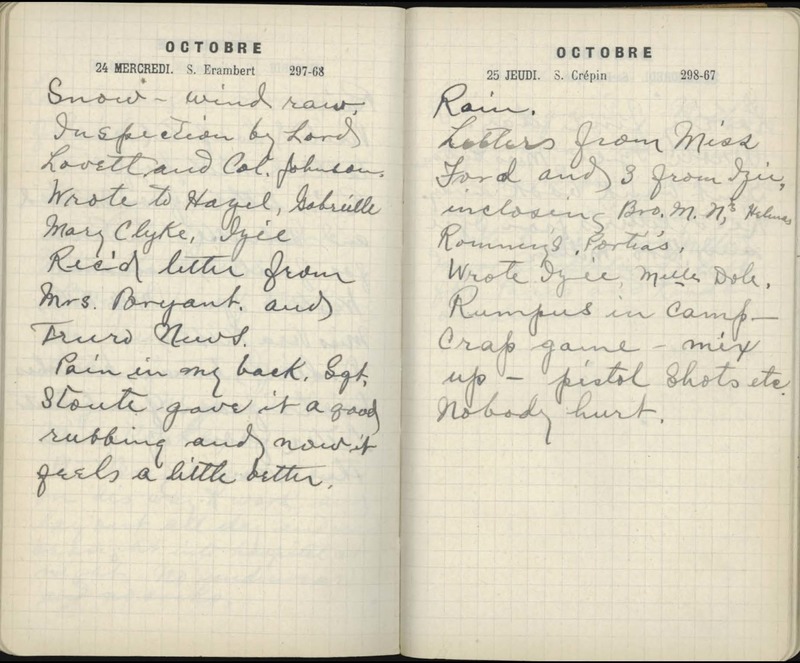 OCTOBRE
24 MERCREDI. S. Erambert 297-68
Snow - wind raw.
Inspection by Lord
Lovett and Col. Johnson.
Wrote to Hazel, Gabrielle
Mary Clyke, Izie
Rec'd letter from
Mrs. Bryant. and
Truro News.
Pain in my back. Sgt.
Stoute gave it a good
rubbing and now it
feels a little better.
OCTOBRE
25 JEUDI. S. Crépin 298-67
Rain.
Letters from Miss
Ford and 3 from Izie,
inclosing Bro. M. N's, Helenas
Portia's.
Wrote Izie, Melle Dole.
Rumpus in camp -
Crap game - mix
up - pistol shots etc.
Nobody hurt.